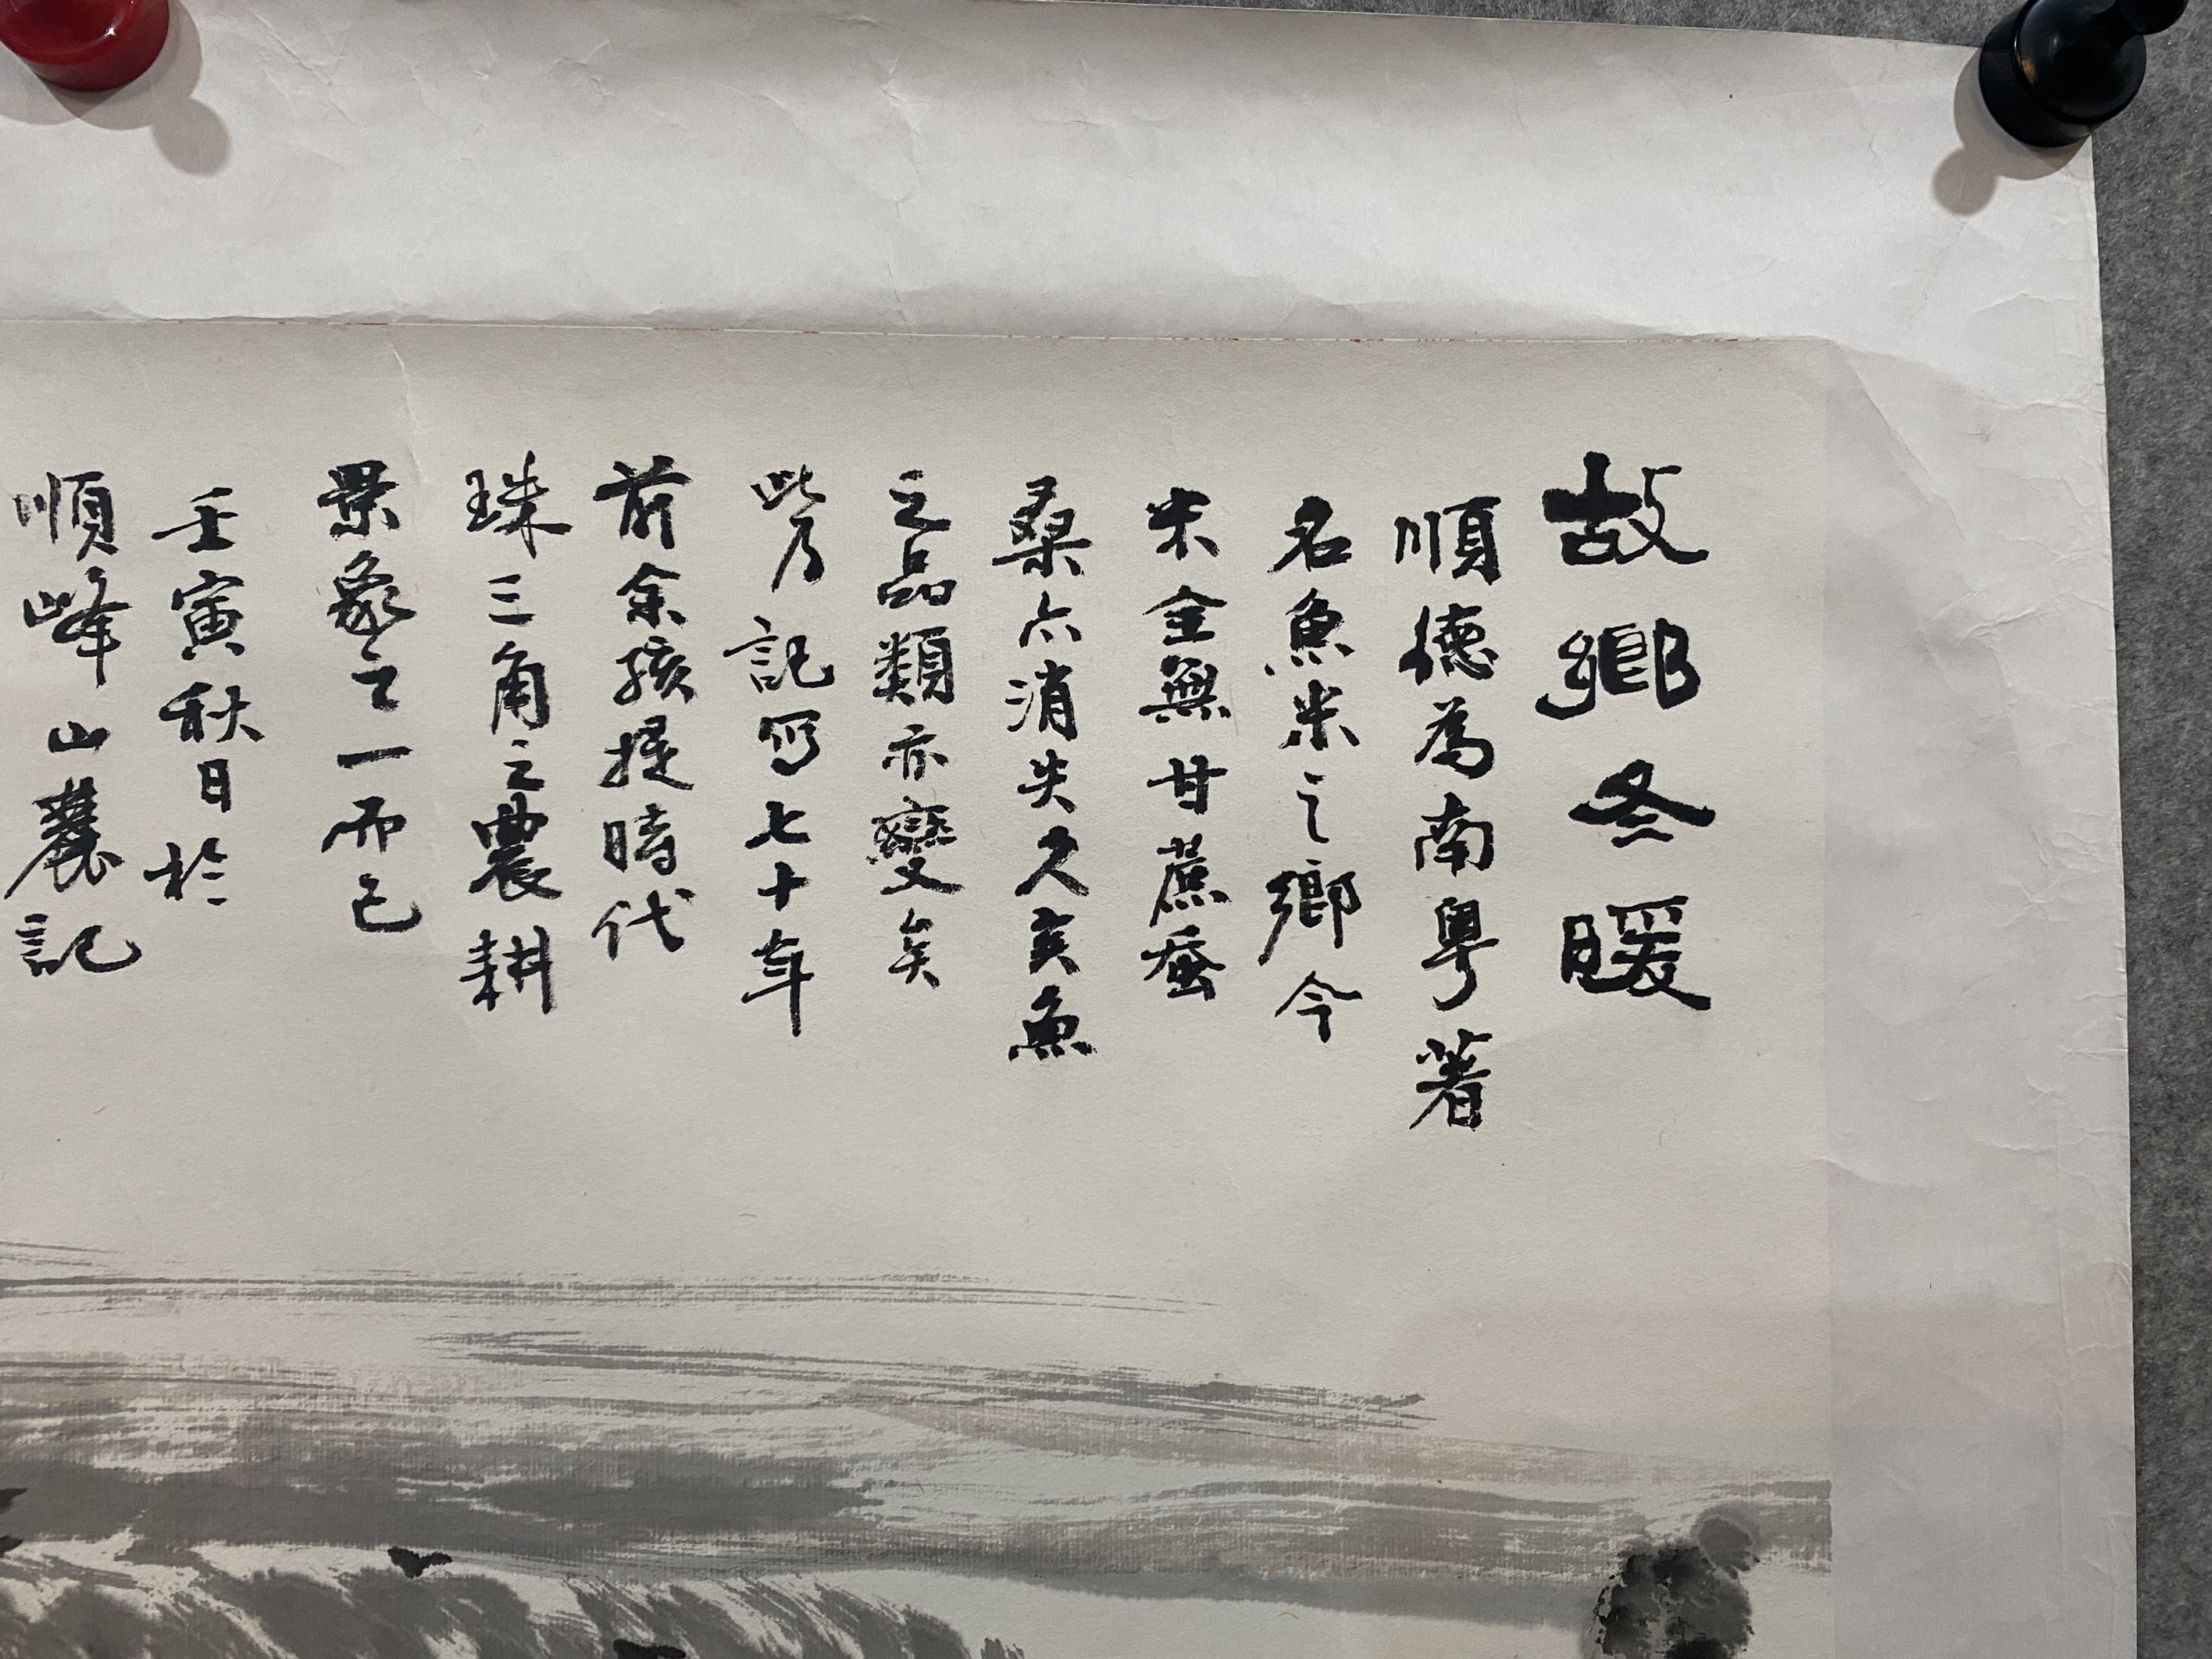 故鄉冬暖
順德為南粵著
名魚米之鄉今
米全無甘蔗蚕
桑亦消失久矣魚
之品類亦變矣
此乃記写七十年
前余孩提時代
珠三角之農耕
景象之一而已
壬寅秋日於
順峰山農記